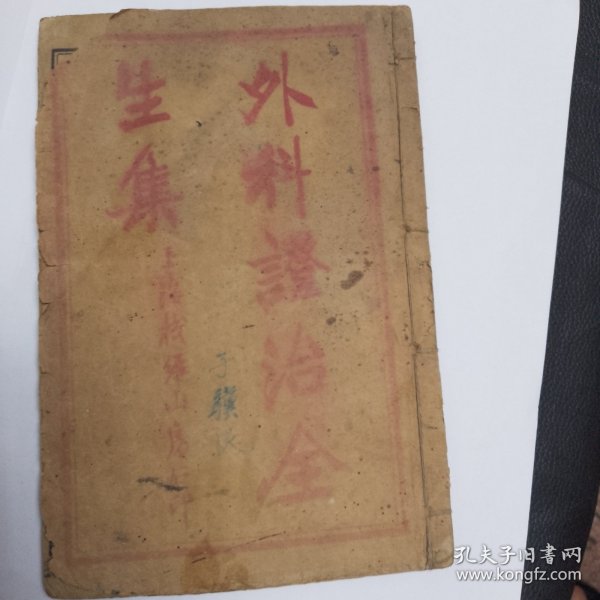 外科證治全
生集
上海
山房
孔夫子旧书网
www.kongfz.com